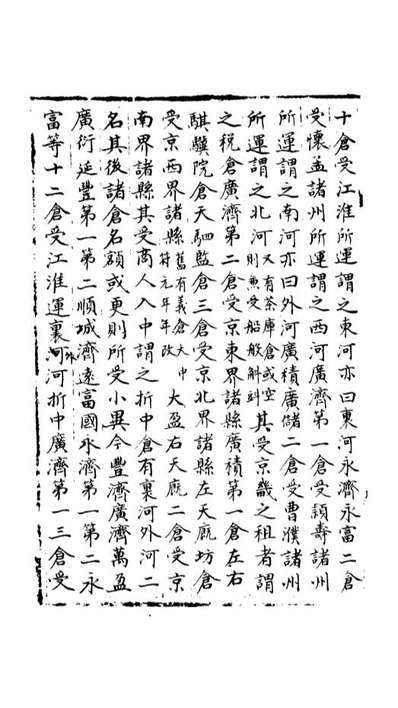 十倉受江淮所運謂之東河亦曰裏河永濟永富二倉
受懷孟諸州所運謂之西河廣濟第一倉受潁壽諸州
所運謂之南河亦曰外河廣積廣儲二倉受曹濮諸州
所運謂之北河又有茶庫倉或空則兼受船般斛㪷其受京畿之租者謂
之稅倉廣濟第二倉受京東界諸縣廣積第一倉左右
騏驥院倉天駟監倉三倉受京北界諸縣左天廐坊倉
受京西界諸縣舊有義倉大中符元年年改大盈右天廐二倉受京
南界諸縣其受商人入中謂之折中倉有裏河外河二
名其後諸倉名額或更則所受小異今豐濟廣濟萬盈
廣衍延豐第一第二順城濟遠富國永濟第一第二永
富等十二倉受江淮運裏河外河折中廣濟第一三倉受